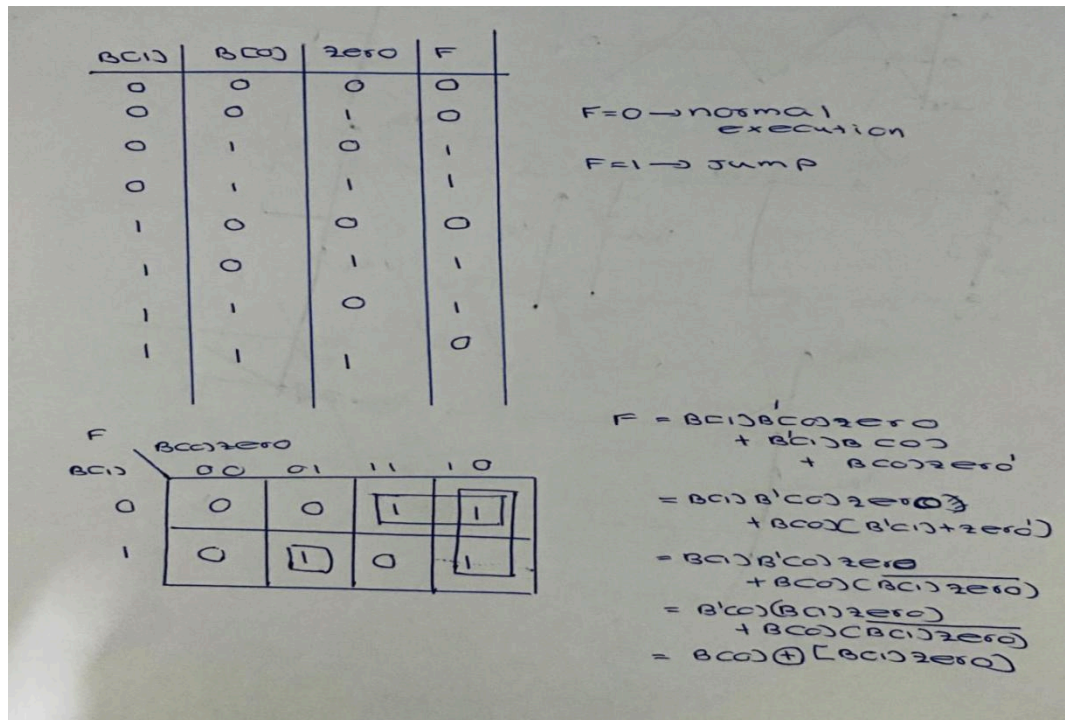 B(1) B(0) zero F
0 0 0 0
0 0 1 0
0 1 0 1
0 1 1 1
1 0 0 0
1 0 1 1
1 1 0 1
1 1 1 0
F=0→normal
execution
F=1→Jump
F B(0)zero
B(1) 00 01 11 10
0 0 0 1 1
1 0 1 0 1
F = B(1)B'(0)zero
+ B'(1)B(0)
+ B(0)zero'
= B(1)B'(0)zero
+B(0)(B'(1)+zero')
= B(1)B'(0)zero
+B(0)(\overline{B(1)zero})
= B'(0)(B(1)zero)
+B(0)(\overline{B(1)zero})
= B(0)⊕[B(1)zero)